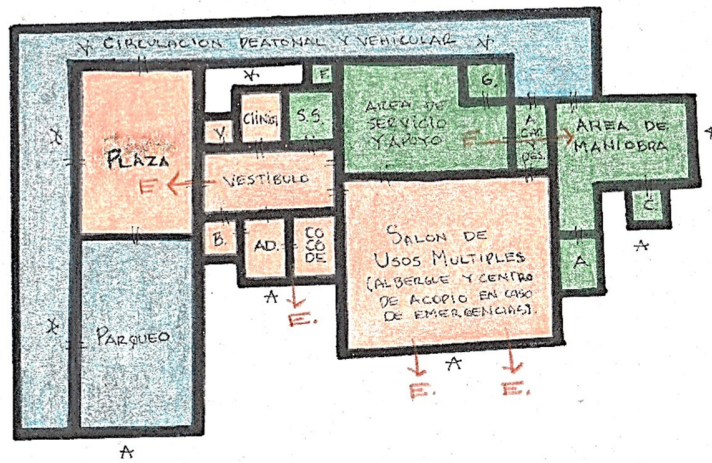 CIRCULACION PEATONAL Y VEHICULAR
F
G.
CLINICA
S.S.
AREA DE
SERVICIO
Y APOYO
E
A
CAR
Y
DES.
AREA DE
MANIOBRA
V.
PLAZA
E
VESTÍBULO
C.
B.
AD.
CO
CO
DE
SALON DE
USOS MULTIPLES
(ALBERGUE Y CENTRO
DE ACOPIO EN CASO
DE EMERGENCIAS).
A
PARQUEO
A
E.
A
E.
E.
A
A